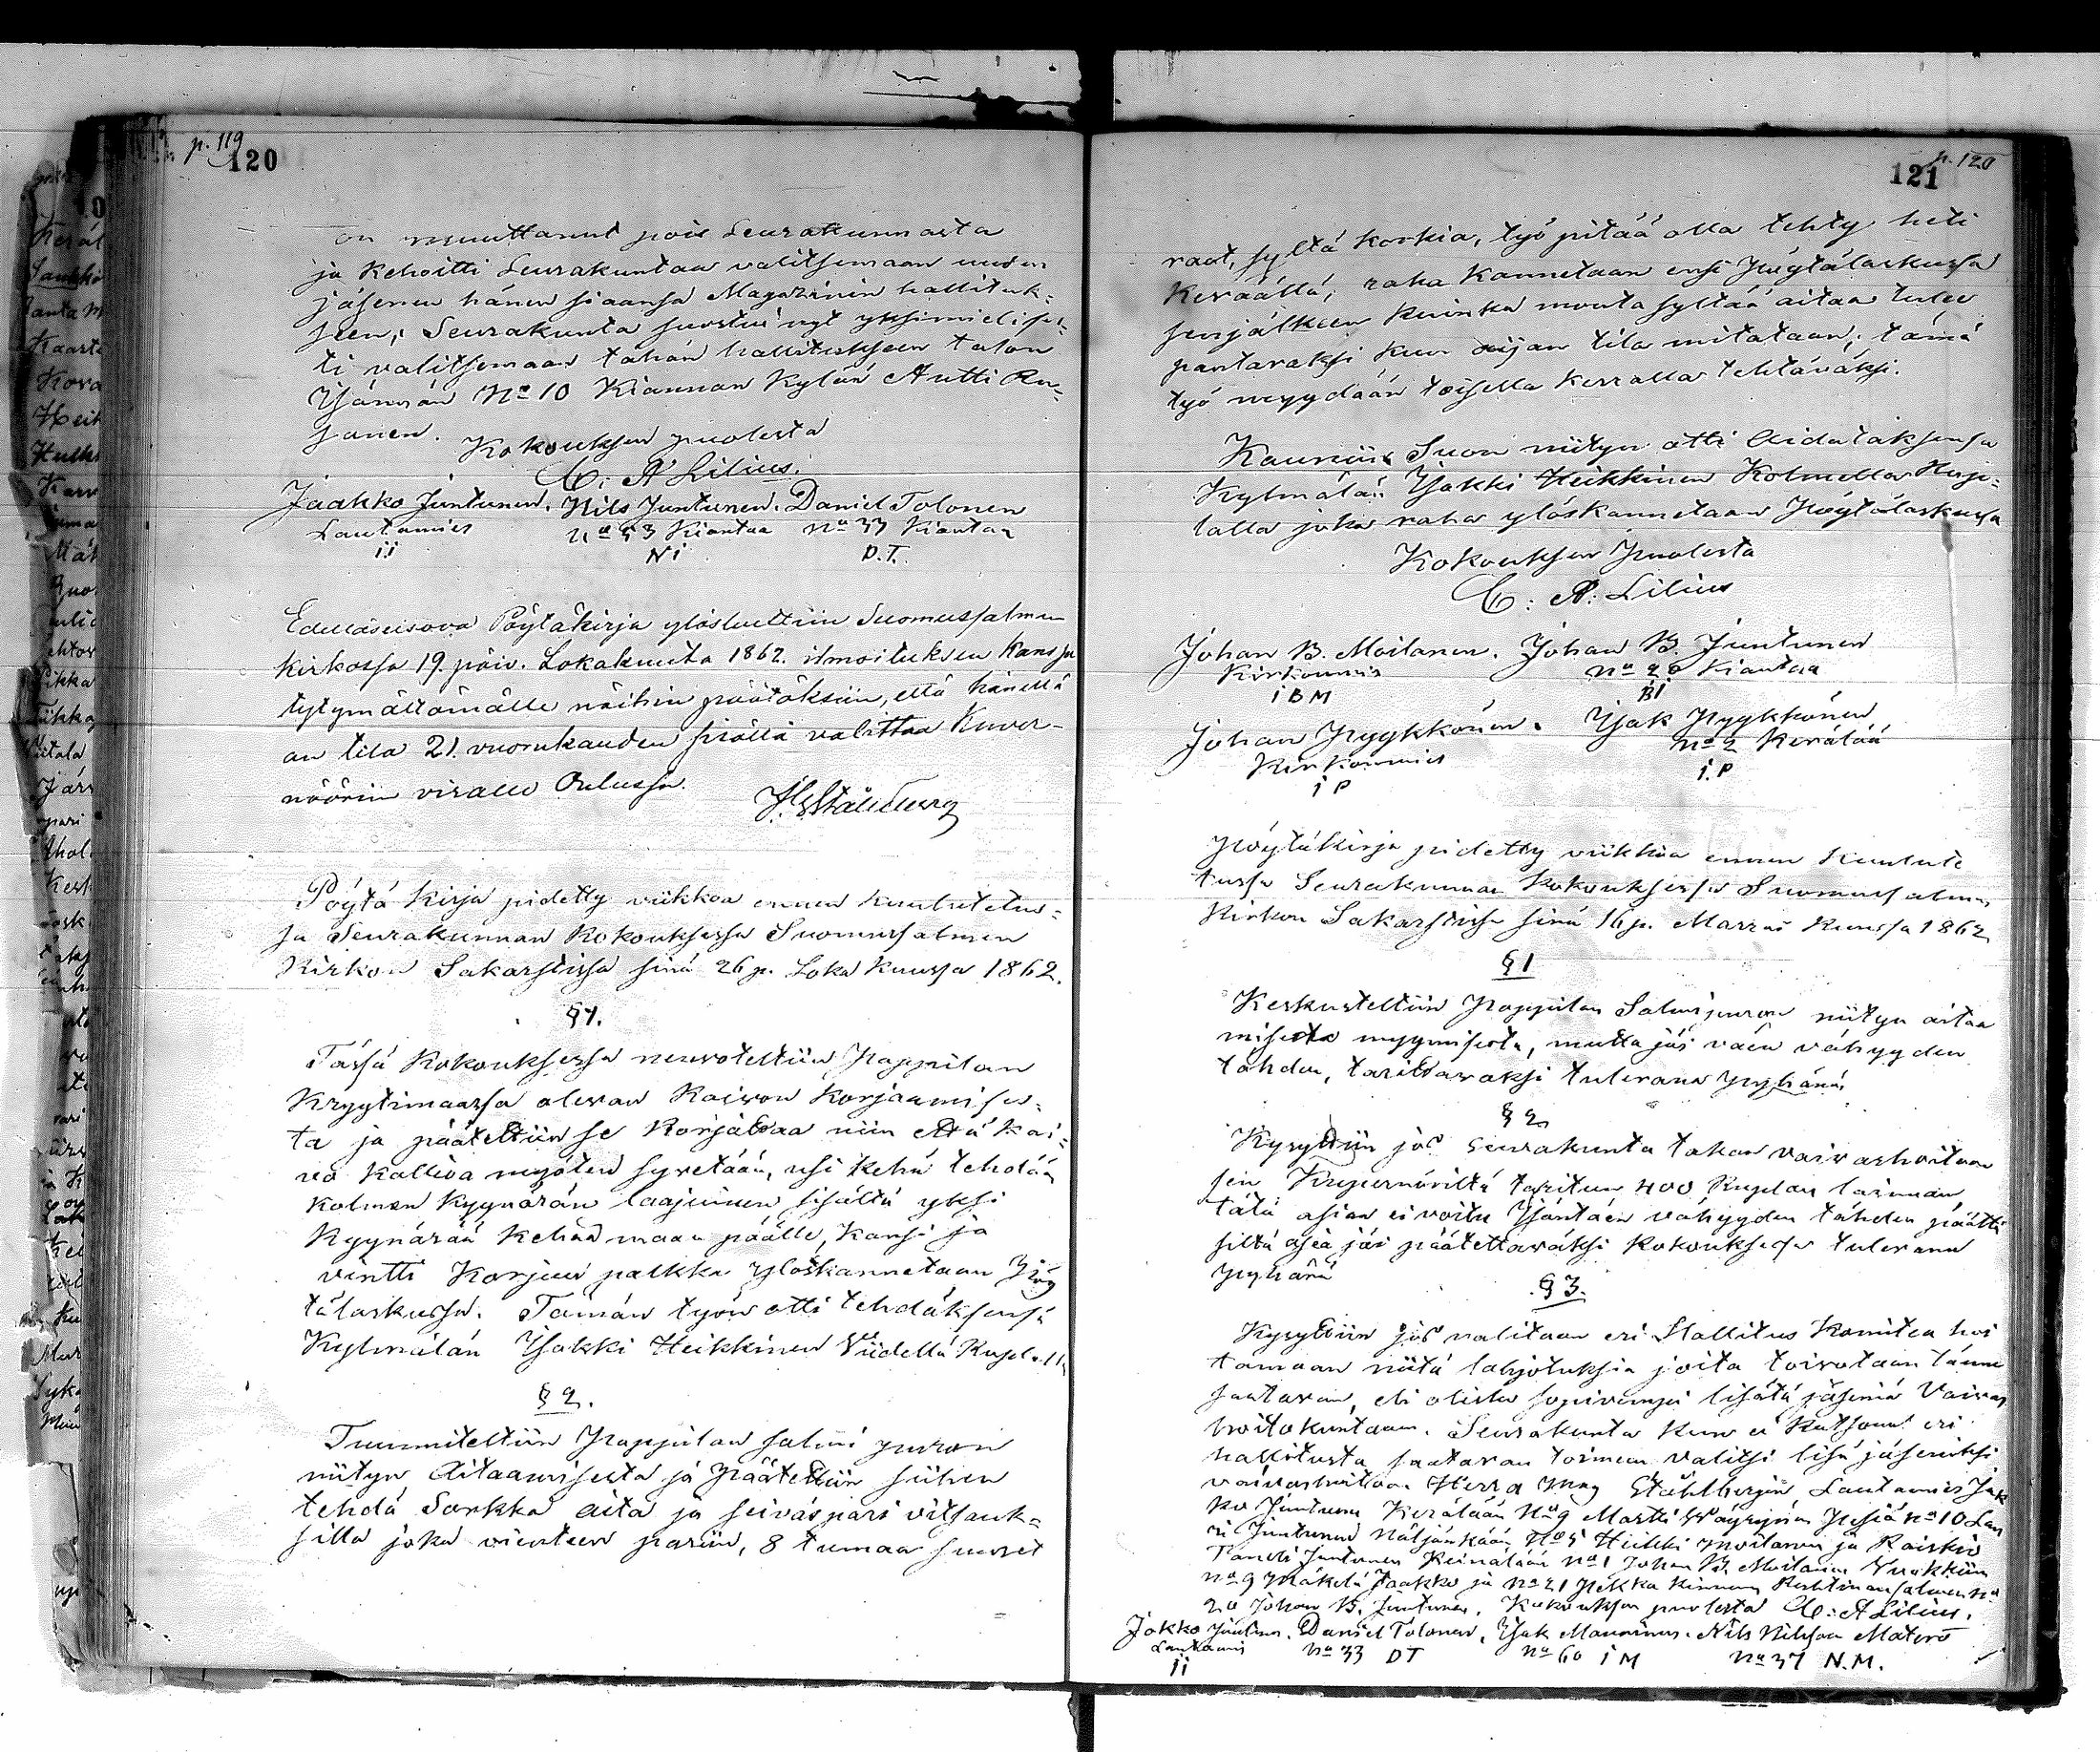 p. 119
120
on muuttanut pois Seurakunnasta
ja kehoitti Seurakuntaa valitsemaan uuden
jäsenen hänen siaansa Magazinin hallituk-
seen; Seurakunta suostui nyt yksimielises-
ti valitsemaan tähän hallitukseen talon
Isännän No 10 Kiannan Kylän Antti
Kokouksen puolesta
C. A. Lilius.
Jaakko Juntunen. Nils Juntunen. Daniel Tolonen
Lautamies No 53 Kiantaa No 33 Kiantaa
ii Ni D.T.
Edelläseisova Pöytäkirja ylösluettiin Suomussalmen
kirkossa 19. päiv. Lokakuuta 1862. ilmoituksen kanssa
tytymättömälle näihin päätöksiin, että hänellä
on tila 21 vuorukauden sisällä valittaa Kuver-
nöörin virastoo Oulussa.
Pöytä Kirja pidetty viikkoa ennen kuulutetus-
sa Seurakunnan Kokouksessa Suomussalmen
Kirkon Sakarstissa sinä 26 p. Loka Kuussa 1862.
§ 1.
Tässä Kokouksessa neuvoteltiin Pappilan
Kryytimaassa olevan Kaivon Korjaamises-
ta ja päätettiin se Korjattaa niin että Kai-
vo Kallioa myöten syvetään, usi Kehä tehdään
Kolmen Kyynärän laajuinen sisältä yksi
Kyynärää Kehää maan päälle, Kansi ja
vintti Korjuu palkka ylöskannetaan Pöy
täläskussa. Tämän työn otti tehdäksensä
Kylmälän Isakki Heikkinen Viidellä Rupl.
§ 2.
Tuumiteltiin Pappilan salmi puron
niityn Aitaamisesta ja Päätettiin siihen
tehdä Sorkka aita ja seiväspari vitsauk-
silla joka pariin, 8 tumaa suuret
p. 120
121
raot, syltä korkia, työ pitää olla tehty heti
Keväällä; raha Kannetaan ensi Pöytäläskussa
senjälkeen Kuinka monta syltää aitaa tulee
pantavaksi Kun sijan tila mitataan; tämä
työ myydään toisella kerralla tehtäväksi.
Suon niityn otti Aidataksensa
Kylmälän Isakki Heikkinen Kolmella Rupl-
lalla joka raha ylöskannetaan Pöytäläskussa
Kokouksen Puolesta
C. A. Lilius
Johan B. Moilanen. Johan B. Juntunen
Kirkonmies No 20 Kiantaa
i B M Bi
Johan Pyykkönen. Isak Pyykkönen
Kirkonmies No 2 Kerälää
i P i. P
Pöytäkirja pidetty viikkoa ennen Kuulute
tussa Seurakunnan Kokouksessa Suomussalmen
Kirkon Sakarstissa sinä 16 p. Marras Kuussa 1862
§ 1
Keskusteltiin Pappilan Salmipuron niityn aitaa
misesta myymisestä, mutta jäi väen vähyyden
tähden, tarittavaksi tulevana pyhänä.
§ 2
Kysyttiin jos Seurakunta tahan vaivashoitoon
sen Kupernöriltä taritun 400 Ruplan lainaan
tätä asian ei voitu Isäntäen vähyyden tähden päättä
siltä asia jäi päätettäväksi Kokouksessa tulevana
pyhänä
§ 3.
Kysyttiin jos valitaan eri Hallitus Komitea hoi
tamaan niitä lahjotuksia joita toivotaan tänne
saatavan, eli olisko sopivampi lisätä jäseniä Vaivas
hoitokuntaan. Seurakunta Kun ei Katsonut eri
hallitusta saatavan toimeen valitsi lisä jäseniksi
vaivashoitoon Herra Ståhlbergin Lautamies Jak
ko Juntunen Kerälään No 9 Martti Pesiö No 10 Lau
ri Juntunen Näljänkään No 5 Heikki Moilanen ja Raiskio
Taneli Juntunen No 1 Johan B. Moilanen Vuokkiin
No 9 Mäkelä Jaakko ja No 21 Pekka Kinnunen
20 Johan B. Juntunen. Kokouksen puolesta C. A. Lilius.
Jakko Juntunen. Daniel Tolonen. Isak Manninen. Nils Nilsson Matero
Lautamies No 33 DT No 60 i M No 37 N.M.
ii